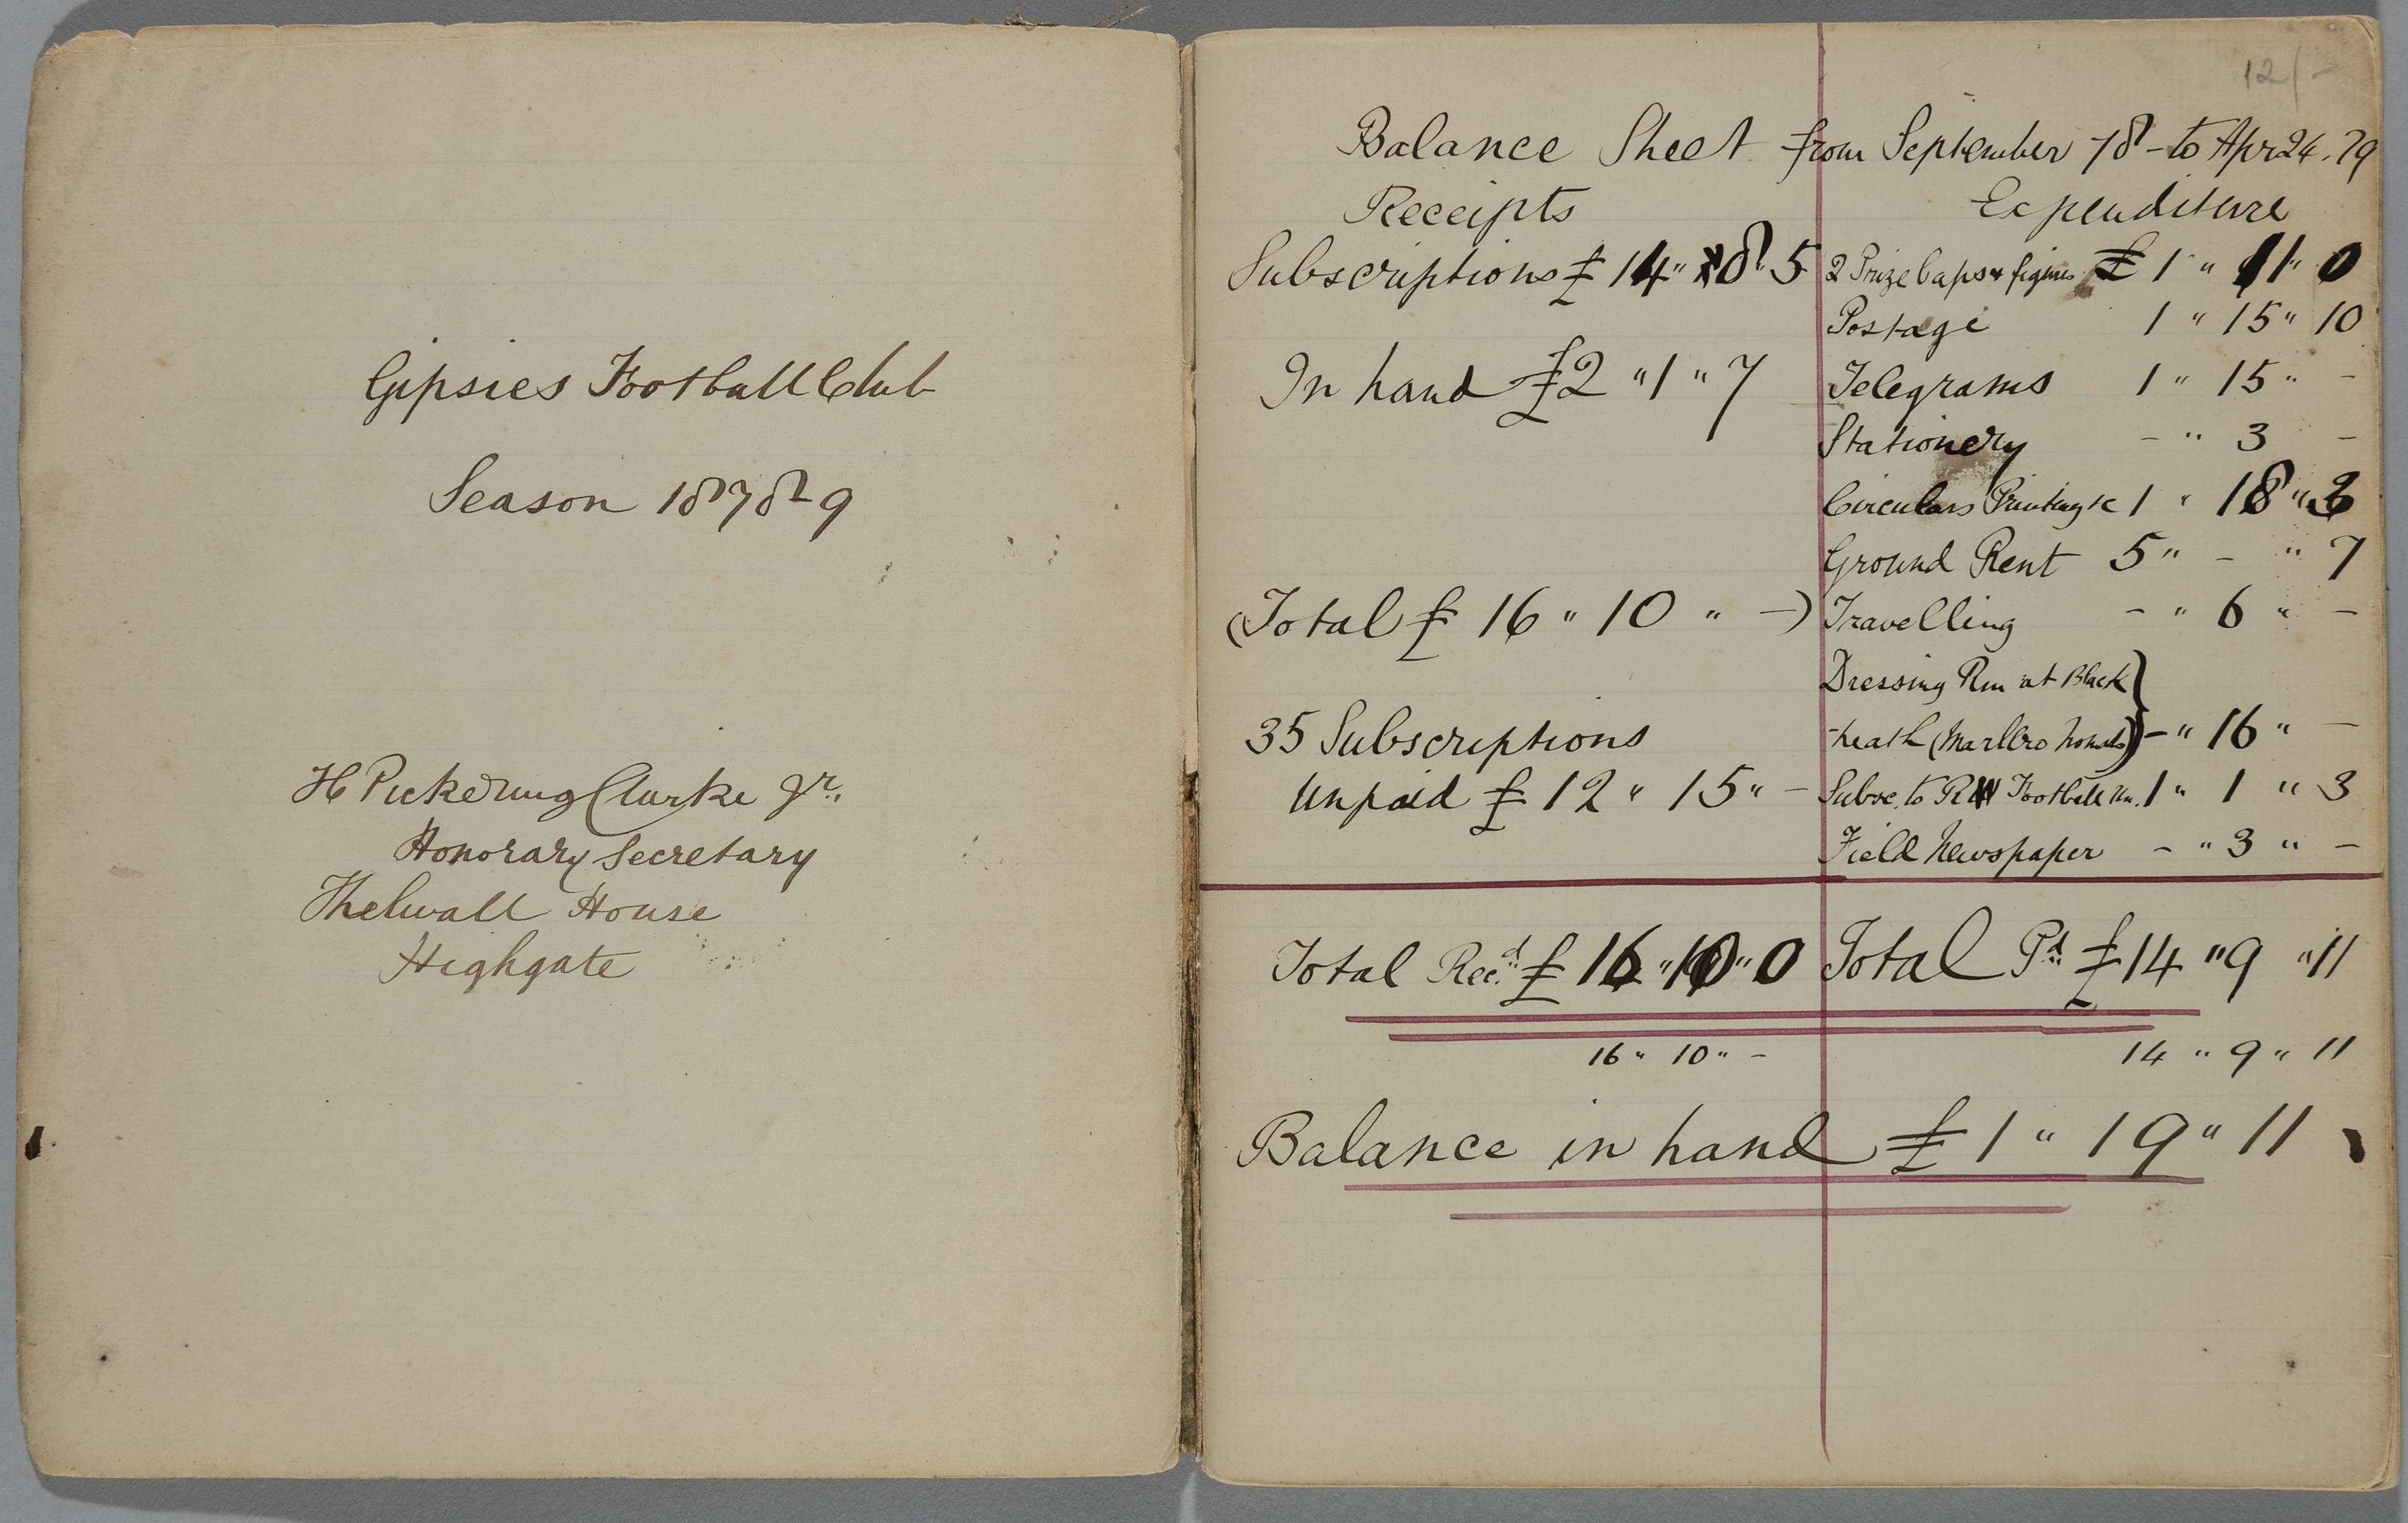 Gipsies Football Club
Season 1878-9
H Pickering Clarke Jr.
Honorary Secretary
Thelwall House
Highgate
12/-
Balance Sheet from September 78 - to Apr 24. 79
Receipts
Subscriptions £ 14 " 8 " 5
In hand £2 " 1 " 7
(Total £ 16 " 10 " -)
35 Subscriptions
Unpaid £ 12 " 15 " -
Expenditure
2 Prize Caps & figures £ 1 " 11 " 0
Postage 1 " 15 " 10
Telegrams 1 " 15 " -
Stationery - " 3 -
Circulars Printing &c 1 " 18 " 3
Ground Rent 5 " - " 7
Travelling - " 6 " -
Dressing Rm at Black
heath (Marlbro Nomads) - " 16 " -
Subsc. to R Football Un. 1 " 1 " 3
Field Newspaper - " 3 " -
Total Recd. £ 16 " 10 " 0 Total Pd. £ 14 " 9 " 11
16 " 10 " - 14 " 9 " 11
Balance in hand £ 1 " 19 " 11